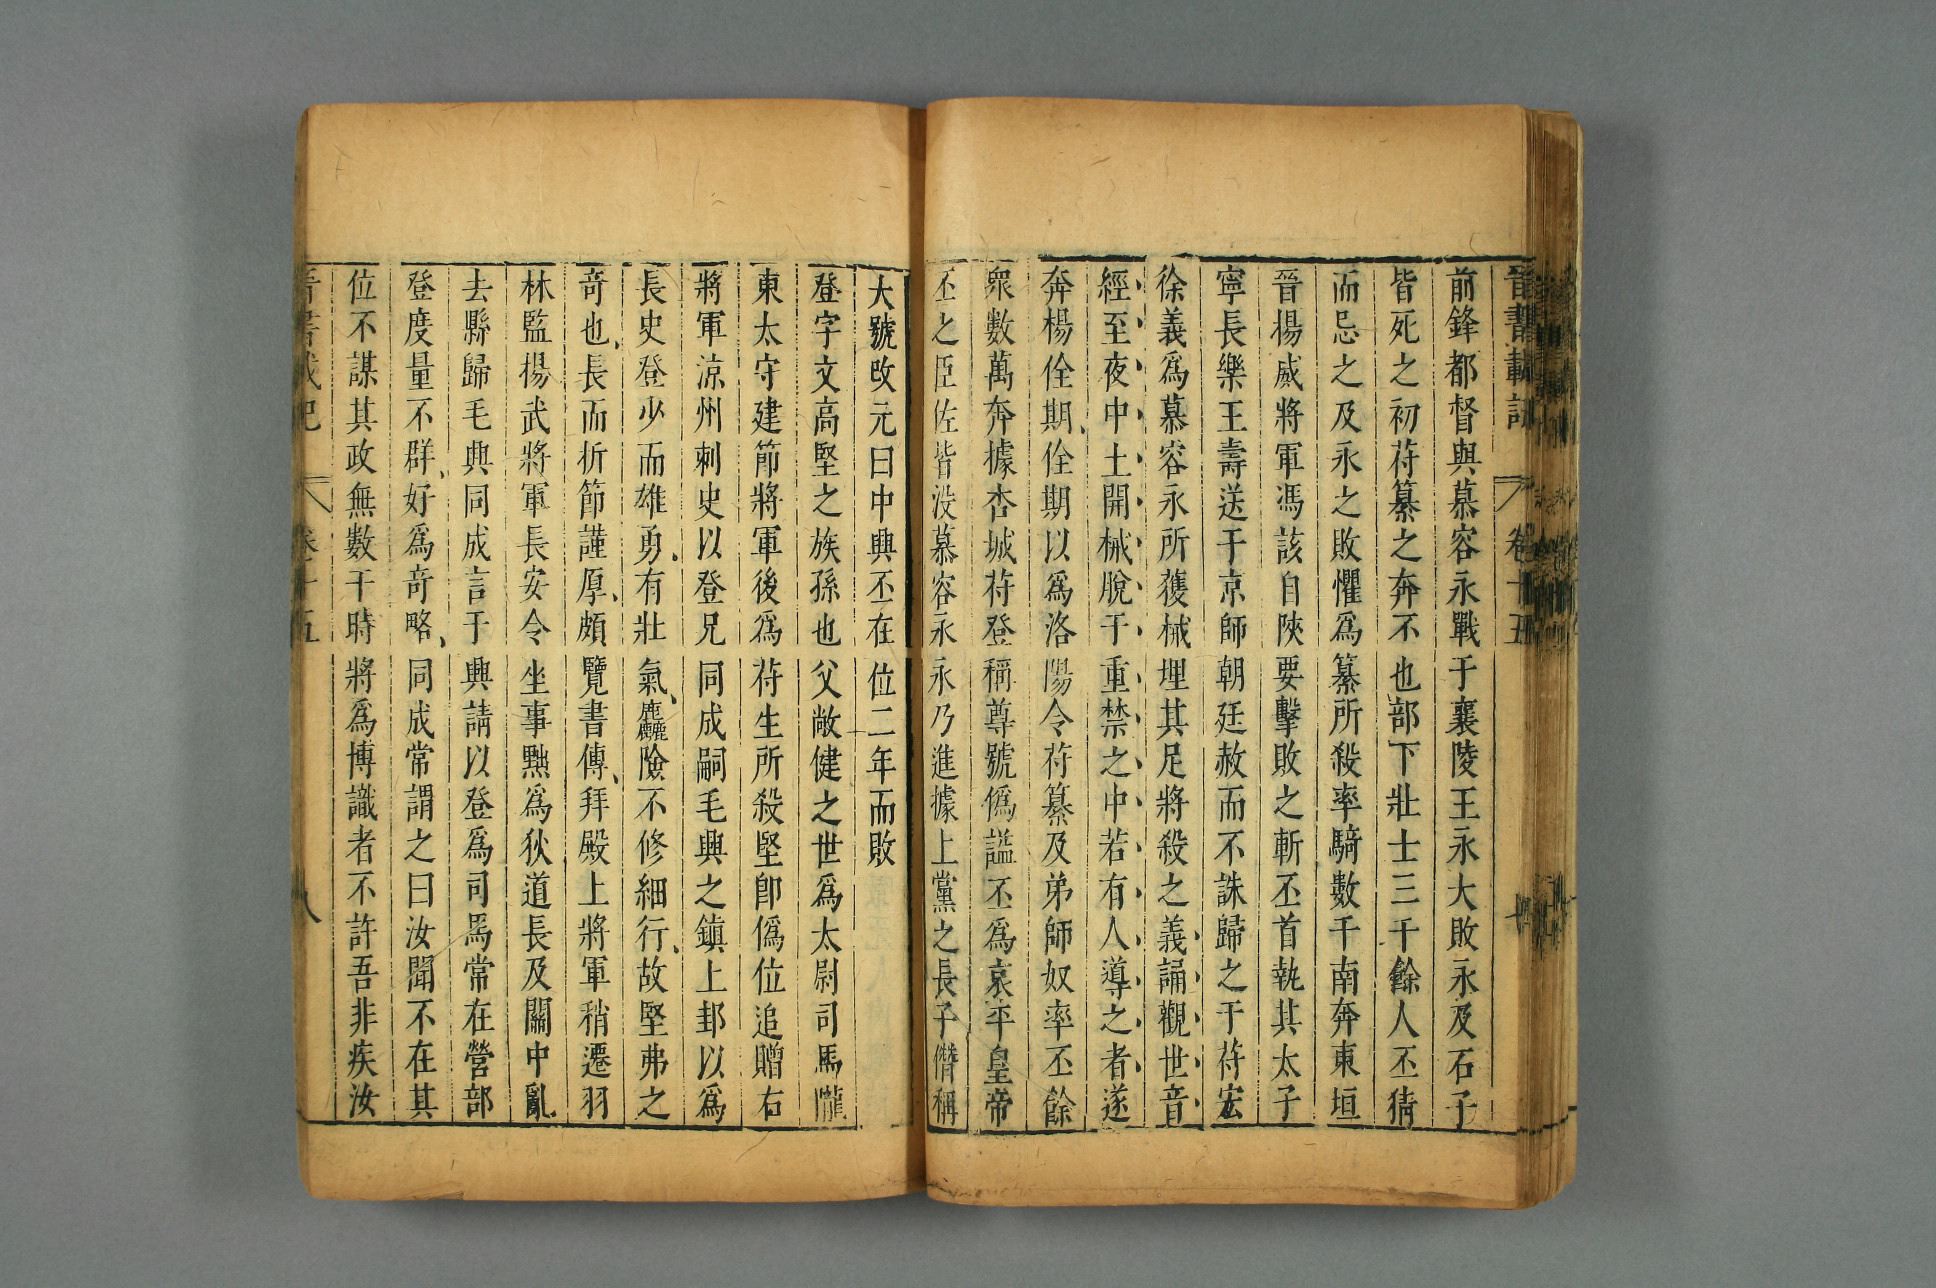 晉書載記 卷十五
前鋒都督與慕容永戰于襄陵王永大敗永及石子
皆死之初苻纂之奔丕也部下壯士三千餘人丕猜
而忌之及永之敗懼爲纂所殺率騎數千南奔東垣
晉楊威將軍馮該自陝要擊敗之斬丕首執其太子
寧長樂王壽送于京師朝廷赦而不誅歸之于苻宏
徐義爲慕容永所獲械埋其足將殺之義誦觀世音
經至夜中土開械脫于重禁之中若有人導之者遂
奔楊佺期佺期以爲洛陽令苻纂及弟師奴率丕餘
衆數萬奔據杏城苻登稱尊號僞謚丕爲哀平皇帝
丕之臣佐皆没慕容永永乃進據上黨之長子僭稱
大號改元曰中興丕在位二年而敗
登字文高堅之族孫也父敞健之世爲太尉司馬隴
東太守建節將軍後爲苻生所殺堅卽僞位追贈右
將軍涼州刺史以登兄同成嗣毛興之鎮上邽以爲
長史登少而雄勇有壯氣麤險不修細行故堅弗之
奇也長而折節謹厚頗覽書傳拜殿上將軍稍遷羽
林監楊武將軍長安令坐事黜爲狄道長及關中亂
去縣歸毛興同成言于興請以登爲司馬常在營部
登度量不群好爲奇略同成常謂之曰汝聞不在其
位不謀其政無數干時將爲博識者不許吾非疾汝
晉書載記 卷十五 八